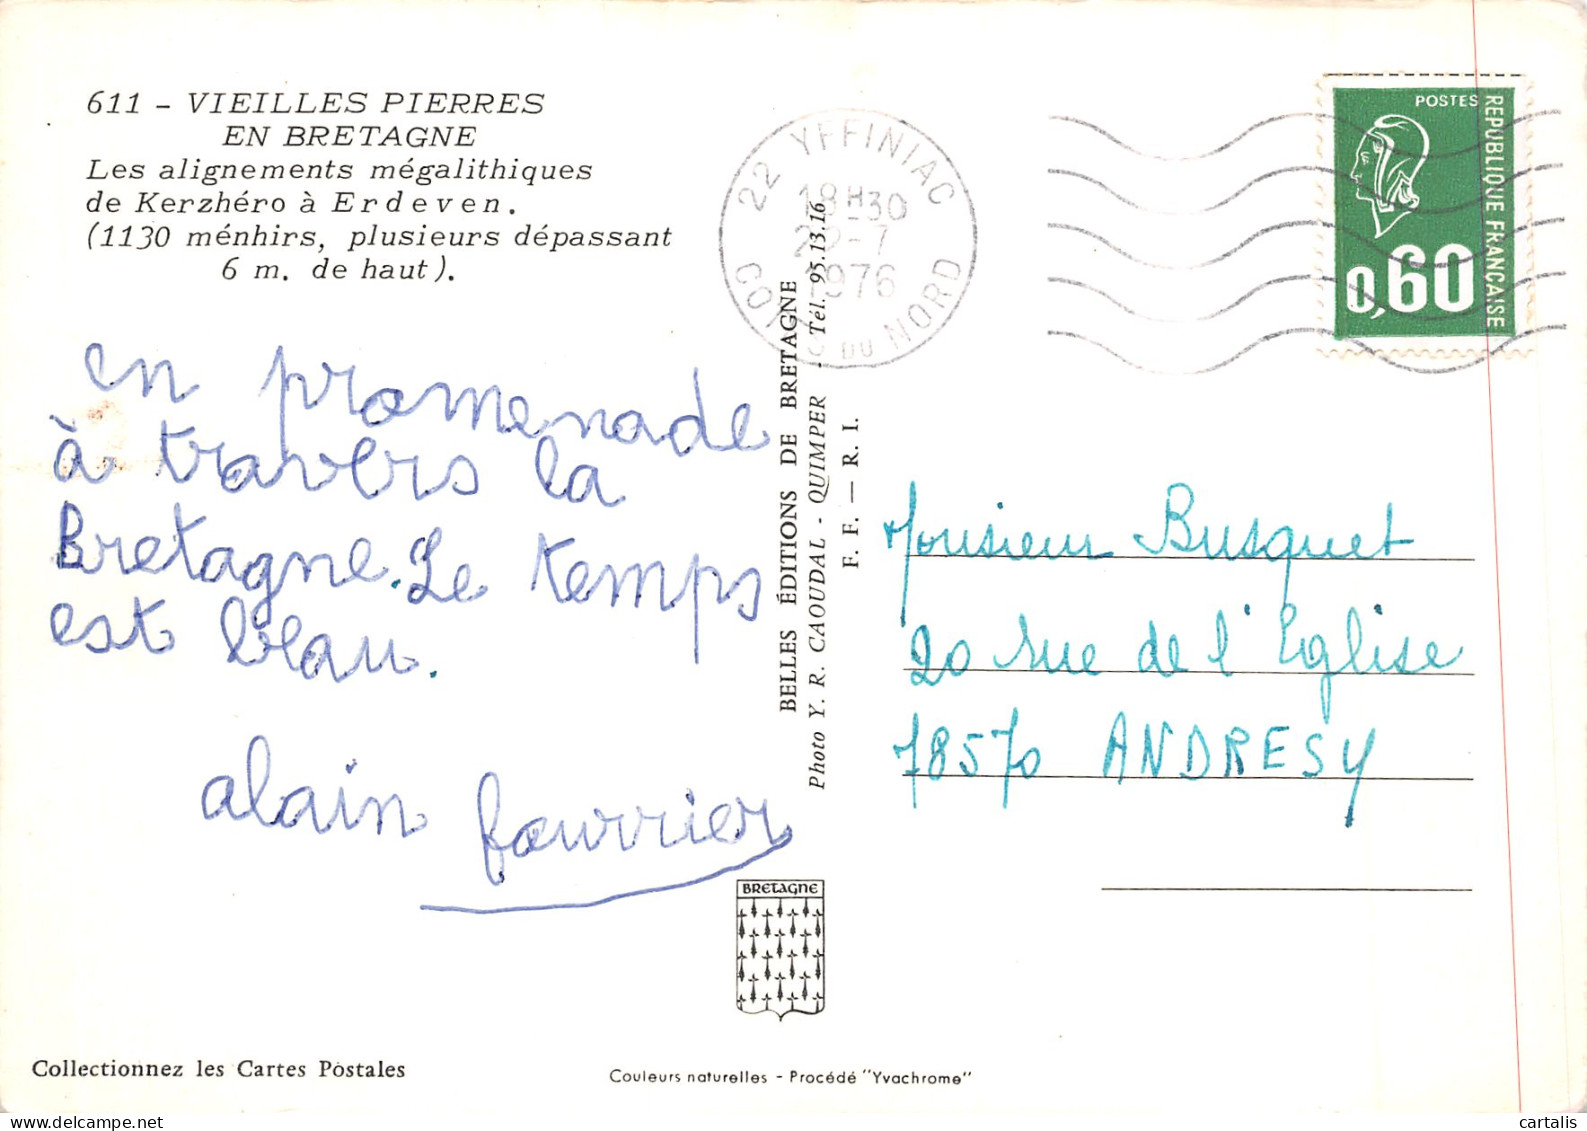 611 - VIEILLES PIERRES
EN BRETAGNE
Les alignements mégalithiques
de Kerzhéro à Erdeven.
(1130 ménhirs, plusieurs dépassant
6 m. de haut).
en promenade
à travers la
Bretagne. Le temps
est beau.
alain fourrier
BRETAGNE
Collectionnez les Cartes Postales
Couleurs naturelles - Procédé "Yvachrome"
BELLES ÉDITIONS DE BRETAGNE
Photo Y. R. CAOUDAL - QUIMPER - Tél. 95.13.16
F. F. — R. I.
22 YFFINIAC
18H30
-7
1976
DU NORD
POSTES
REPUBLIQUE FRANÇAISE
0,60
Monsieur Busquet
20 rue de l'Eglise
78570 ANDRESY
cartalis